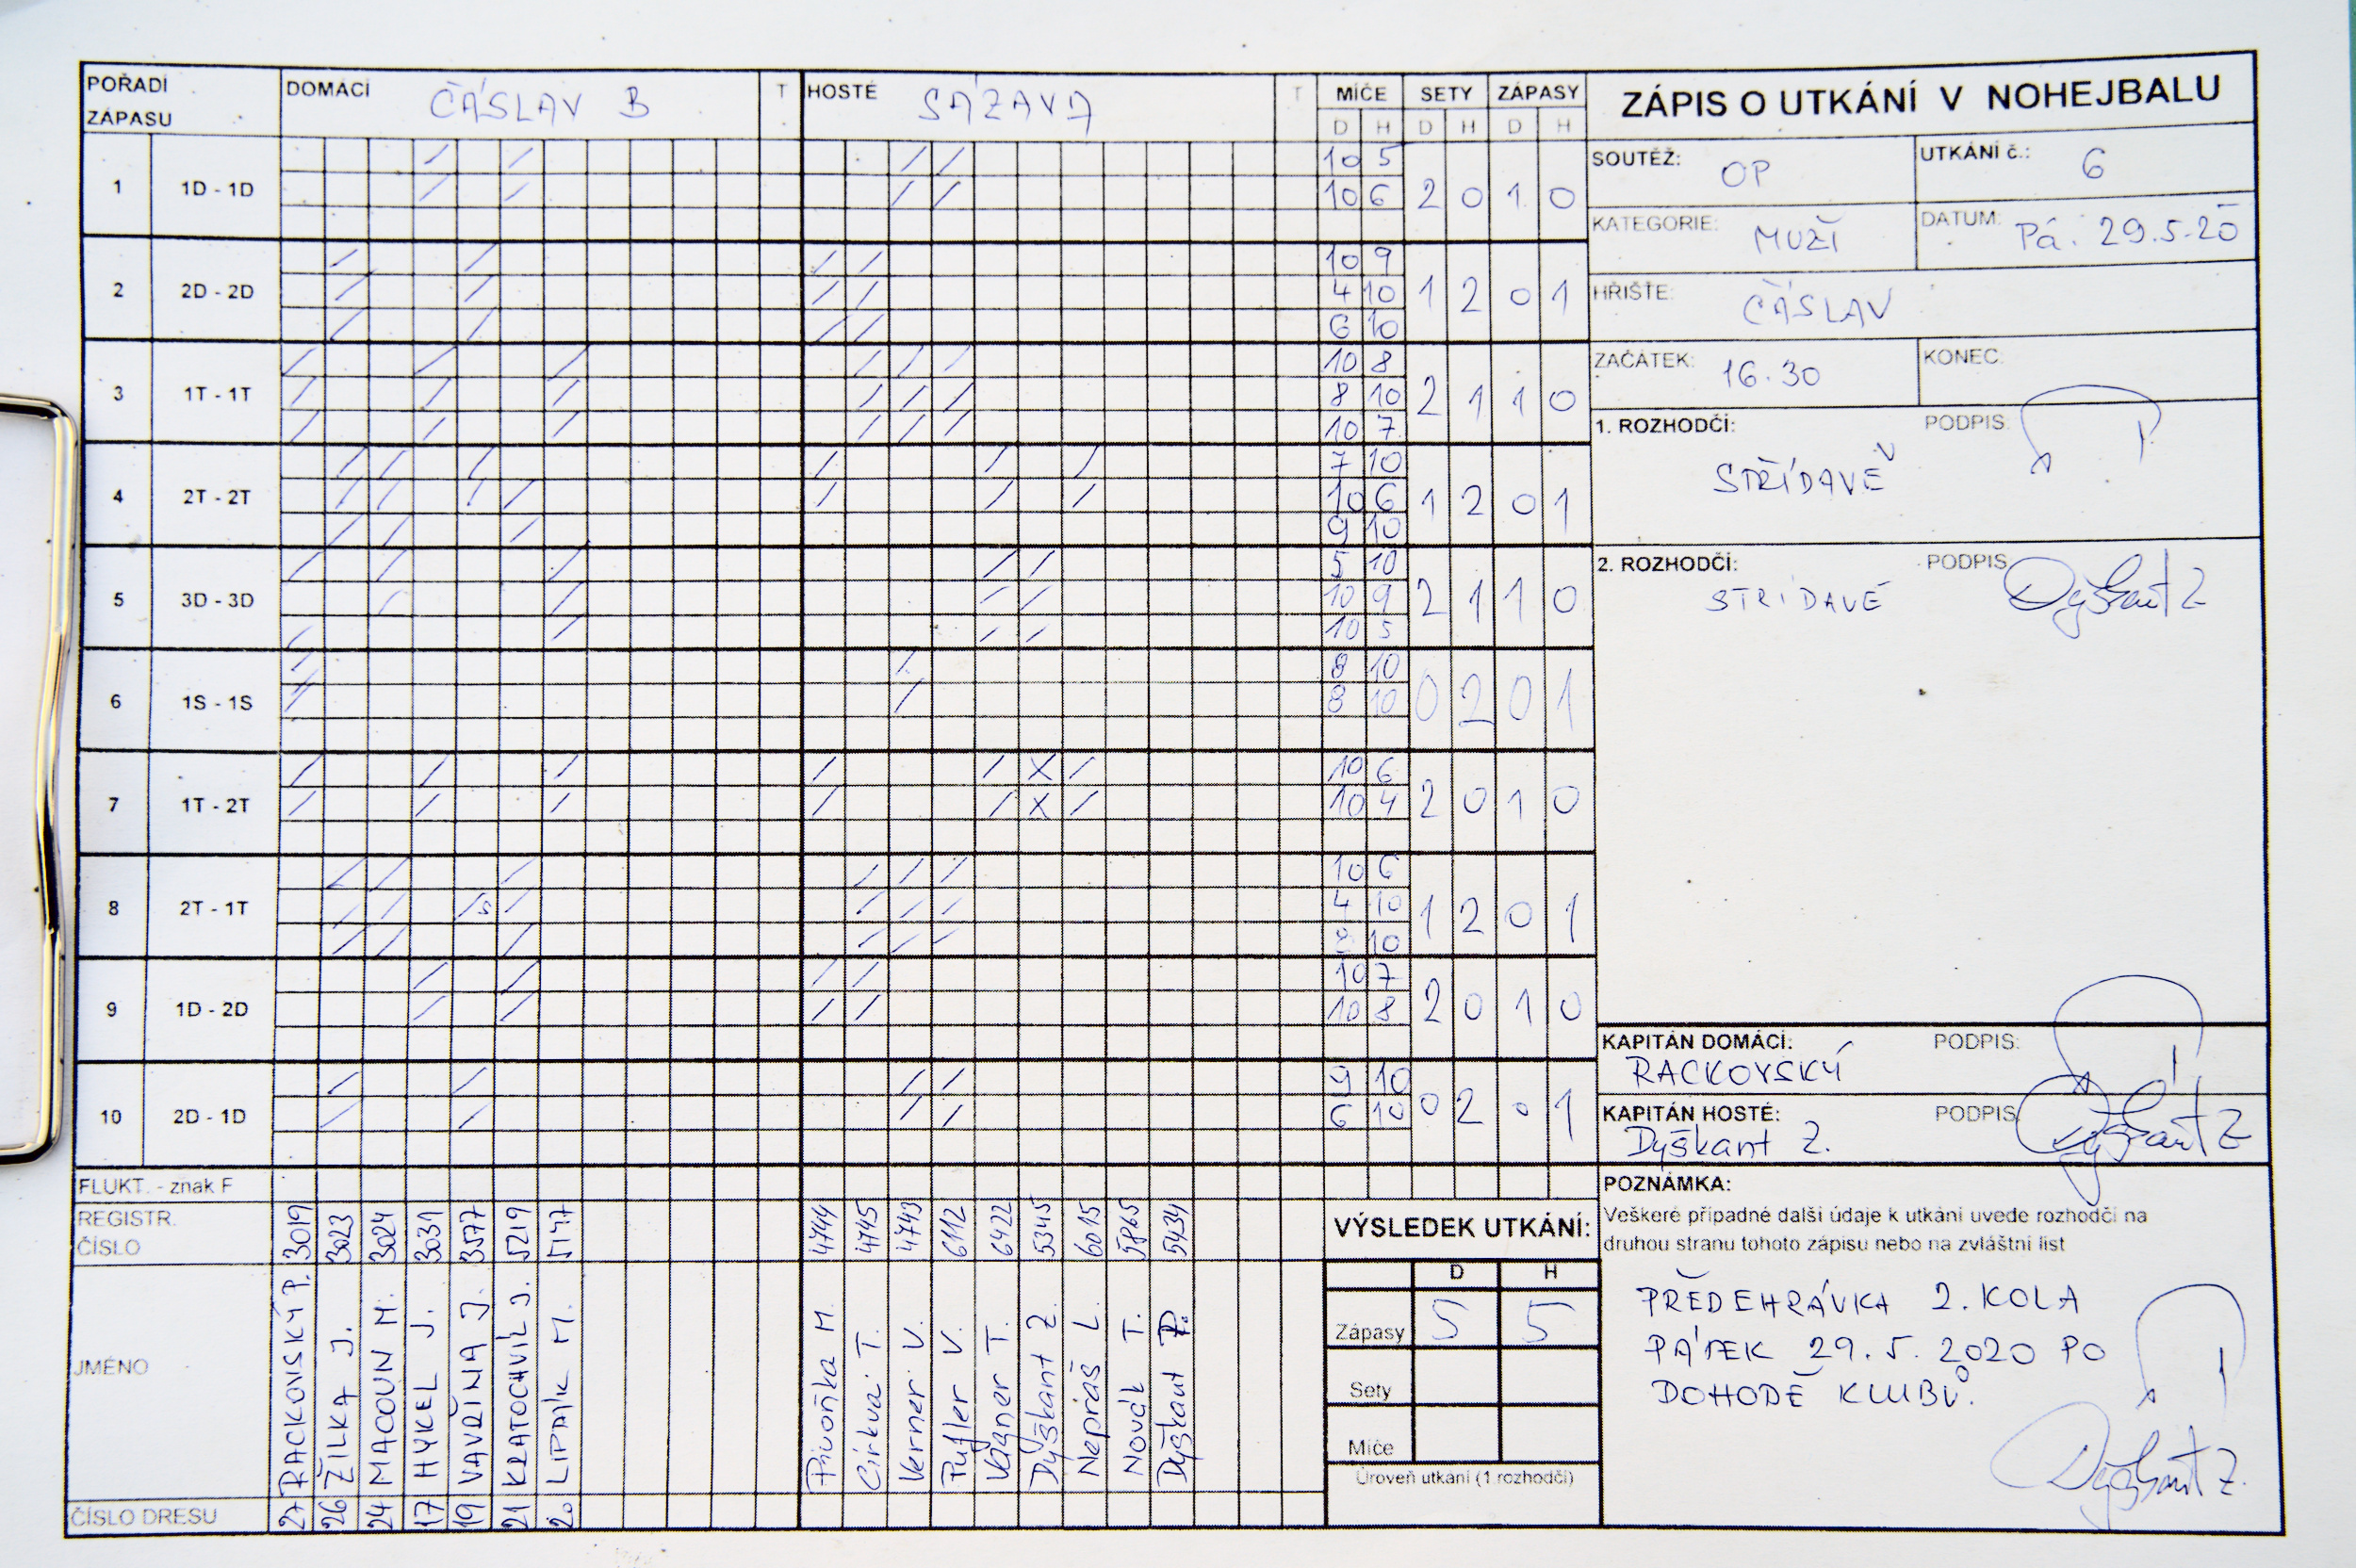 POŘADÍ ZÁPASU DOMÁCÍ ČÁSLAV B T HOSTÉ SÁZAVA T MÍČE SETY ZÁPASY
D H D H D H
ZÁPIS O UTKÁNÍ V NOHEJBALU
SOUTĚŽ: OP UTKÁNÍ č.: 6
KATEGORIE: MUŽI DATUM: Pá. 29.5.20
HŘIŠTĚ: ČÁSLAV
ZAČÁTEK: 16.30 KONEC:
1. ROZHODČÍ: PODPIS:
STŘÍDAVĚ
2. ROZHODČÍ: PODPIS: Dyškant Z
STŘÍDAVĚ
1 1D - 1D 10 5 2 0 1 0
10 6
2 2D - 2D 10 9 1 2 0 1
4 10
6 10
3 1T - 1T 10 8 2 1 1 0
8 10
10 7
4 2T - 2T 7 10 1 2 0 1
10 6
9 10
5 3D - 3D 5 10 2 1 1 0
10 9
10 5
6 1S - 1S 8 10 0 2 0 1
8 10
7 1T - 2T 10 6 2 0 1 0
10 4
8 2T - 1T 10 6 1 2 0 1
4 10
10
9 1D - 2D 10 7 2 0 1 0
10 8
10 2D - 1D 9 10 0 2 0 1
6 10
KAPITÁN DOMÁCÍ: PODPIS:
RACKOVSKÝ
KAPITÁN HOSTÉ: PODPIS: Dyškant Z
Dyškant Z.
FLUKT. - znak F
REGISTR. ČÍSLO 3019 3023 3024 3031 3577 5219 5147 4744 4745 4743 6112 6422 5345 6015 5865 5434
JMÉNO RACKOVSKÝ P. ŽILKA J. MACOUN M. HYKEL J. VAVŘINA J. KRATOCHVÍL J. LIPAIK M. Pivoňka M. Církva T. Verner V. Pufler V. Vágner T. Dyškant Z. Nepraš L. Novák T. Dyškant P.
ČÍSLO DRESU 27 26 24 17 19 21 20
VÝSLEDEK UTKÁNÍ:
D H
Zápasy 5 5
Sety
Míče
Úroveň utkání (1 rozhodčí)
POZNÁMKA:
Veškeré případné další údaje k utkání uvede rozhodčí na
druhou stranu tohoto zápisu nebo na zvláštní list
PŘEDEHRÁVKA 2. KOLA
PÁTEK 29. 5. 2020 PO
DOHODĚ KLUBŮ.
Dyškant Z.